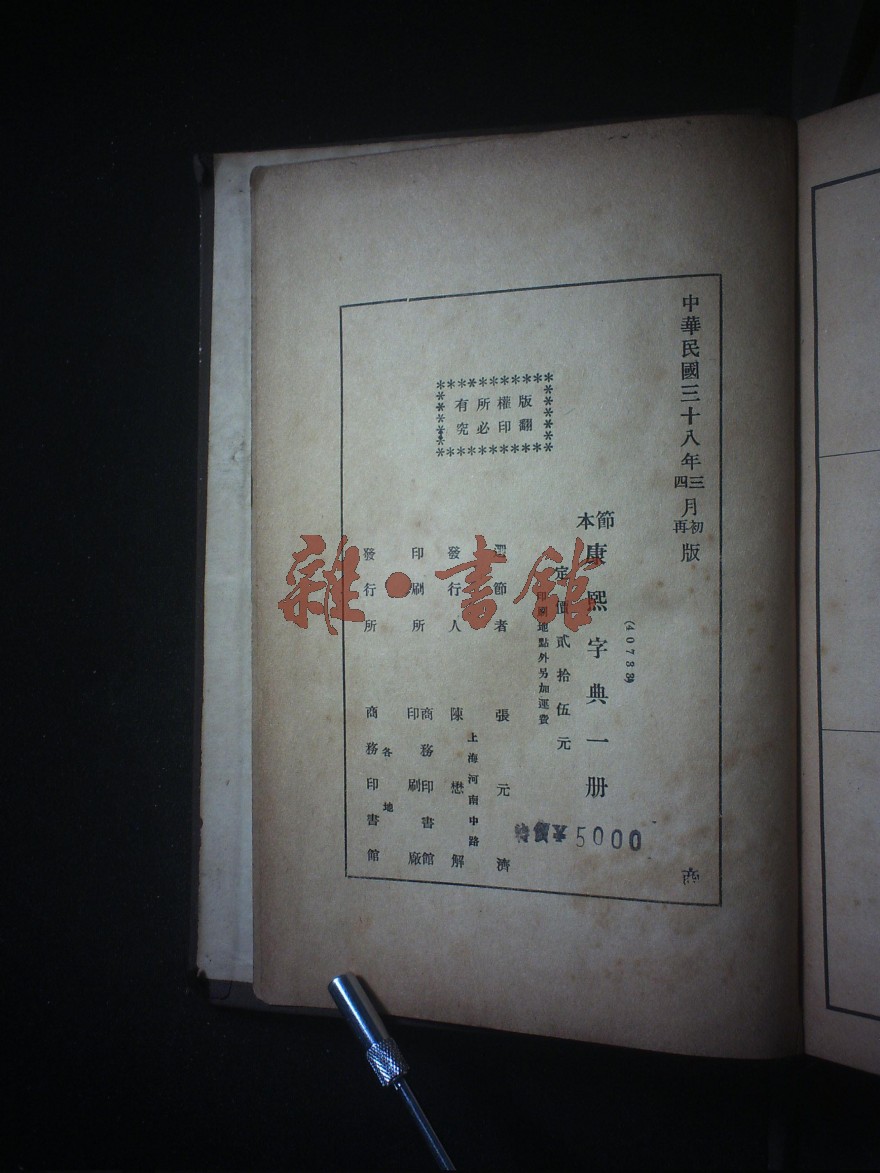 中華民國三十八年三四月初再版
節本康熙字典一册
(40733)
定價貳拾伍元
印刷地點外另加運費
5000
版權所有
翻印必究
選節者 張元濟
上海河南中路
發行人 陳懋解
印刷所 商務印書館印刷廠
發行所 各地商務印書館
雜·書館